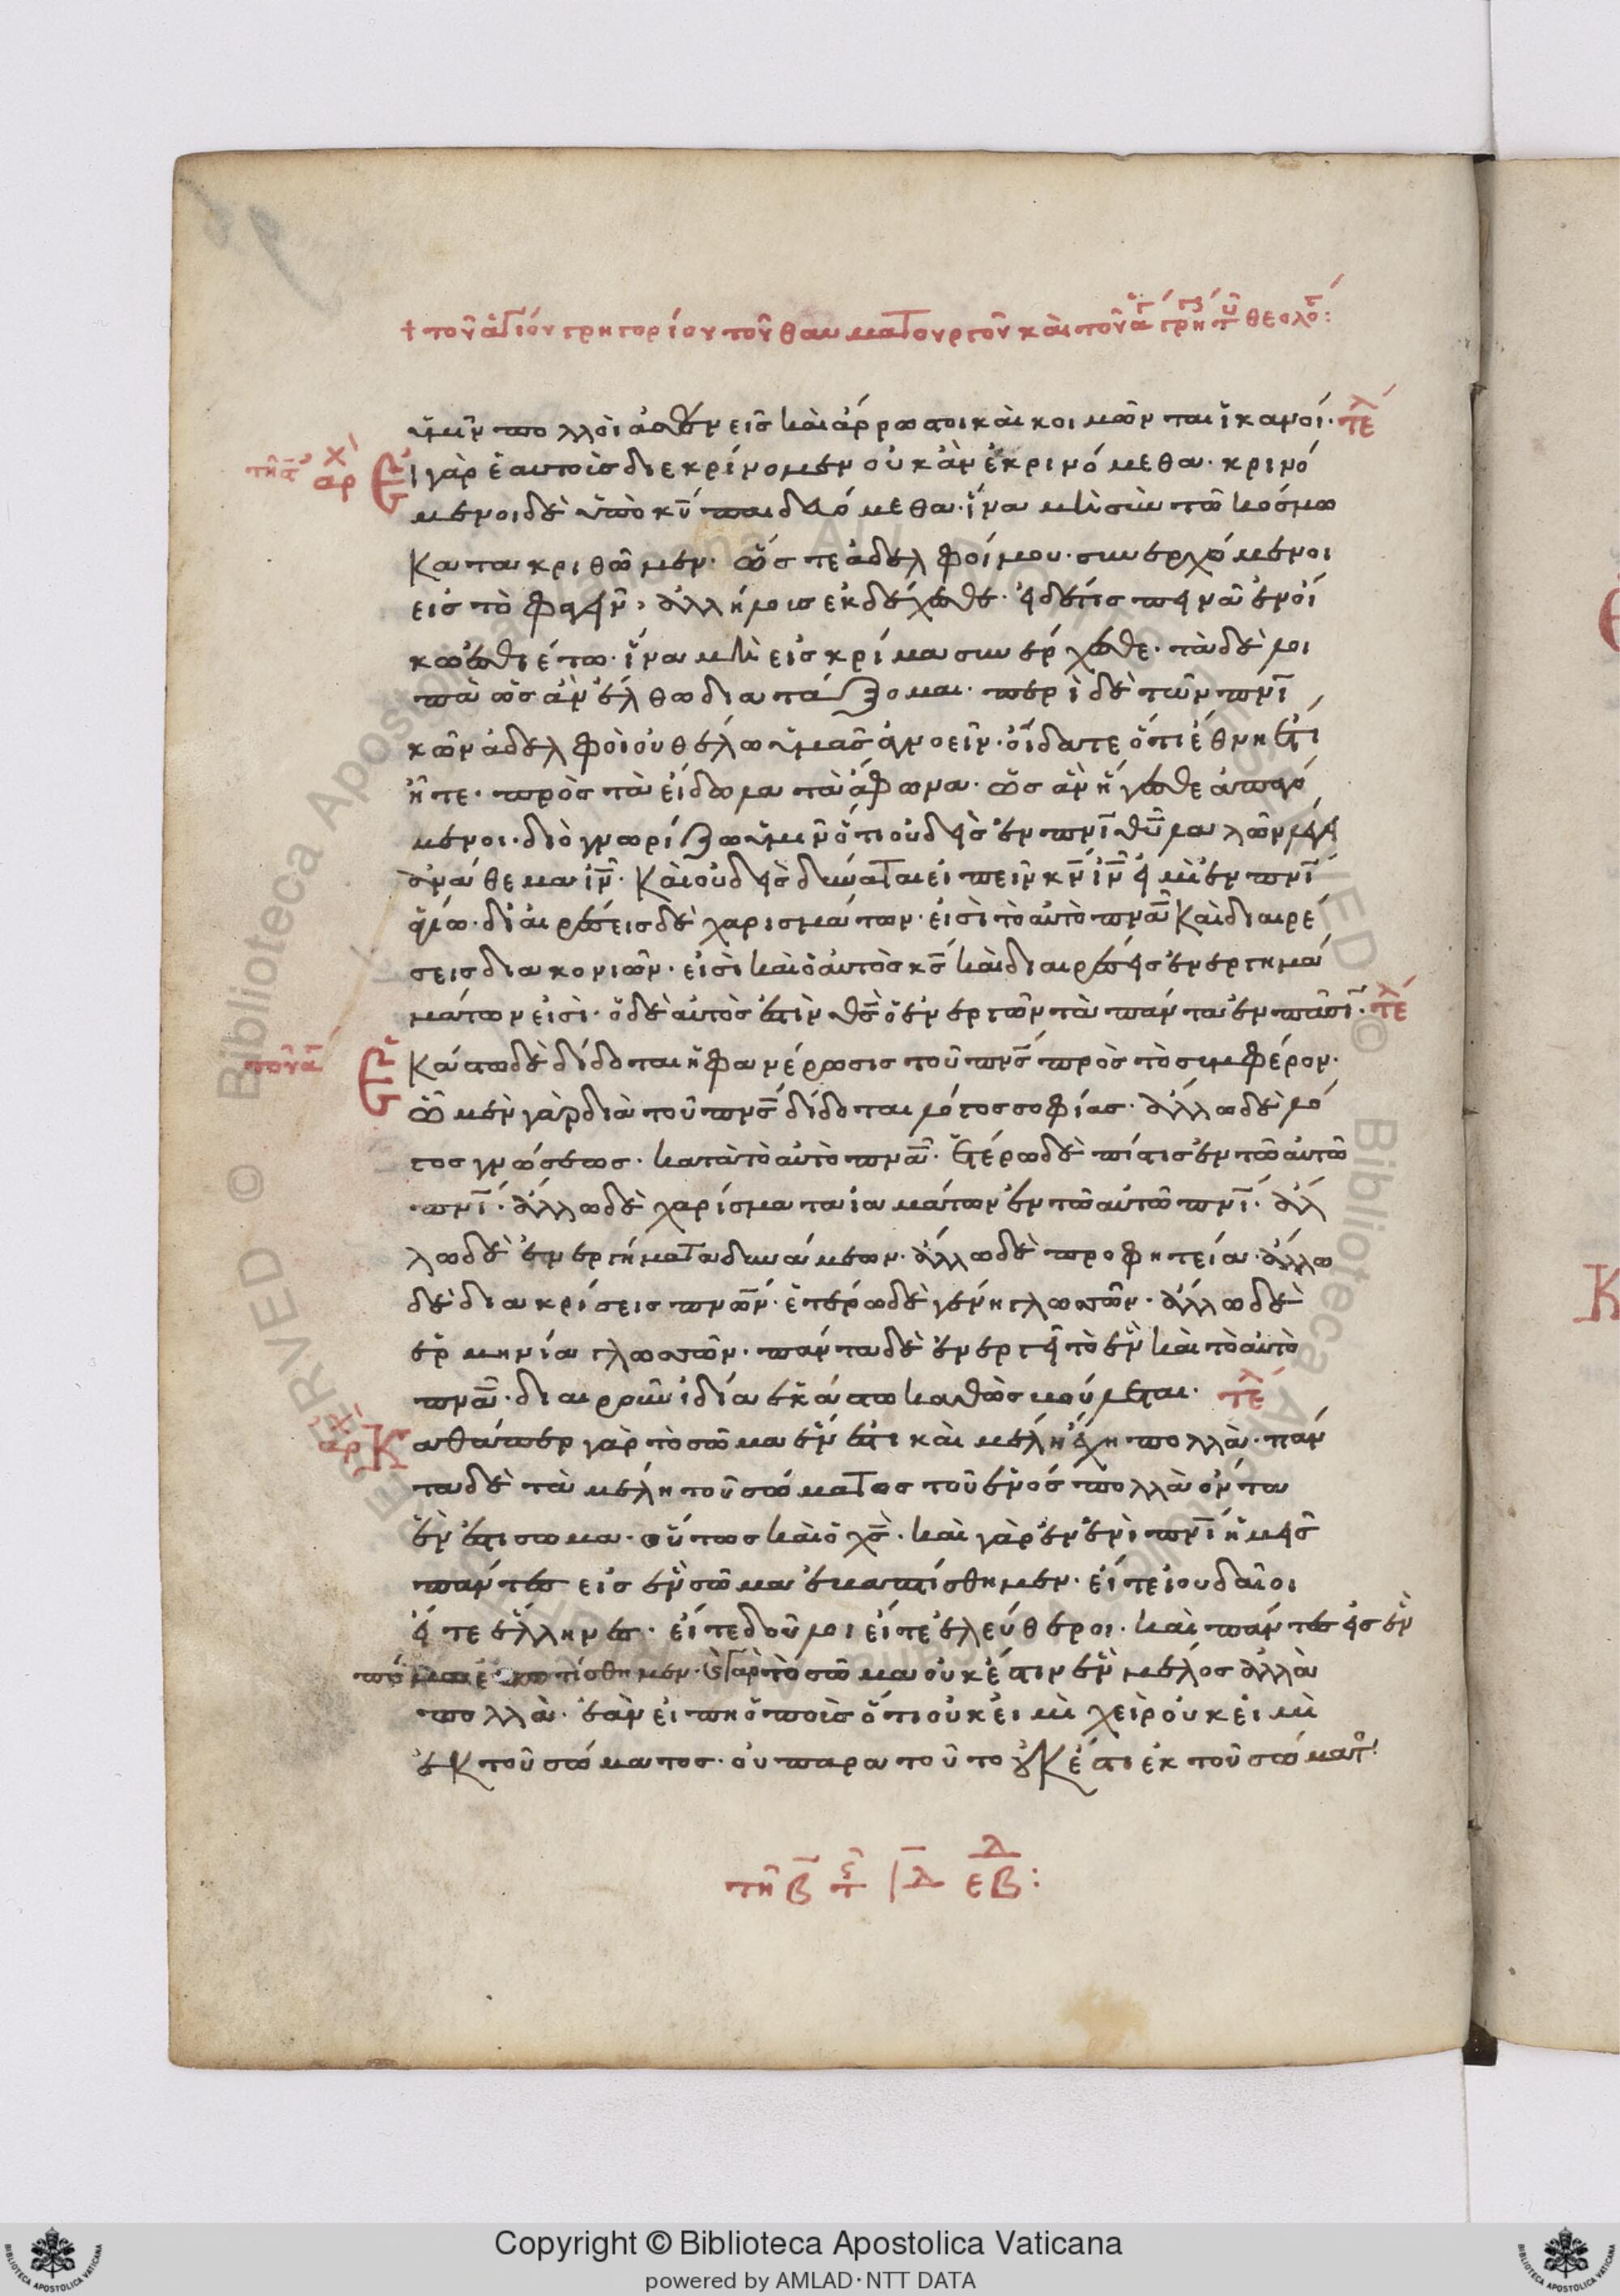 + τοῦ ἁγίου γρηγορίου τοῦ θαυματουργοῦ καὶ τοῦ ἁγ γρη τ θεολό:
ὑμῖν πολλοὶ ἀσθενεῖς καὶ ἄρρωστοι καὶ κοιμῶνται ἱκανοί· τε
αρχ Ει γὰρ ἑαυτοὺς διεκρίνομεν οὐκ ἂν ἐκρινόμεθα· κρινό
μενοι δὲ ὑπὸ κῦ παιδευόμεθα· ἵνα μὴ σὺν τῶ κόσμω
κατακριθῶμεν· ὥστε ἀδελφοί μου· συνερχόμενοι
εἰς τὸ φαγεῖν, ἀλλήλοις ἐκδέχεσθε· εἰ δέ τις πεινᾶ ἐν οἴ
κω ἐσθιέτω· ἵνα μὴ εἰς κρίμα συνέρχεσθε· τὰ δὲ λοι
πὰ ὡς ἂν ἔλθω διατάξομαι· περὶ δὲ τῶν πνι
κῶν ἀδελφοὶ οὐ θέλω ὑμᾶς ἀγνοεῖν· οἴδατε ὅτι ἔθνη ἔτι
ἦτε· πρὸς τὰ εἴδωλα τὰ ἄφωνα· ὡς ἂν ἤγεσθε ἀπαγό
μενοι· διὸ γνωρίζω ὑμῖν ὅτι οὐδεὶς ἐν πνι θῦ λαλῶν λέγει
ἀνάθεμα ιν· Καὶ οὐδεὶς δύναται εἰπεῖν κν ιν εἰ μὴ ἐν πνι
ἁγίω· διαιρέσεις δὲ χαρισμάτων· εἰσὶ τὸ αὐτὸ πνα Καὶ διαιρέ
σεις διακονιῶν· εἰσὶ καὶ ὁ αὐτὸς κς καὶ διαιρέσεις ἐνεργημά
μάτων εἰσὶ· ὁ δὲ αὐτὸς ἐστὶν θς ὁ ἐνεργῶν τὰ πάντα ἐν πᾶσι· τε
τοῦ α Εκάστω δὲ δίδοται ἡ φανέρωσις τοῦ πνς πρὸς τὸ συμφέρον·
ὧ μὲν γὰρ διὰ τοῦ πνς δίδοται λόγος σοφίας· ἄλλω δὲ λό
γος γνώσεως· κατὰ τὸ αὐτὸ πνα· ἑτέρω δὲ πίστις ἐν τῶ αὐτῶ
πνι· ἄλλω δὲ χαρίσματα ἰαμάτων ἐν τῶ αὐτῶ πνι· ἄλ
λω δὲ ἐνεργήματα δυνάμεων· ἄλλω δὲ προφητεία· ἄλλω
δὲ διακρίσεις πνων· ἑτέρω δὲ γένη γλωσσῶν· ἄλλω δὲ
ἑρμηνία γλωσσῶν· πάντα δὲ ἐνεργεῖ τὸ ἓν καὶ τὸ αὐτὸ
πνα· διαιροῦν ἰδία ἑκάστω καθὼς βούλεται· τε
αρχ Καθάπερ γὰρ τὸ σῶμα ἕν ἐστι καὶ μέλη ἔχει πολλὰ· πάν
τα δὲ τὰ μέλη τοῦ σώματος τοῦ ἑνός πολλὰ ὄντα
ἕν ἐστι σωμα· οὕτως καὶ ὁ χς· καὶ γὰρ ἐν ἑνὶ πνι ἡμεῖς
πάντες εἰς ἓν σῶμα ἐβαπτίσθημεν· εἴτε ἰουδαῖοι
εἴτε ἕλληνες· εἴτε δοῦλοι εἴτε ἐλεύθεροι· καὶ πάντες εἰς ἓν
πόμα ἐποτίσθημεν· καὶ γὰρ τὸ σῶμα οὐκ ἔστιν ἓν μέλος ἀλλὰ
πολλὰ· ἐὰν εἴπη ὁ ποὺς ὅτι οὐκ εἰμὶ χεὶρ οὐκ εἰμὶ
ἐκ τοῦ σώματος· οὐ παρα τοῦτο οὐκ ἔστι ἐκ τοῦ σώματος
τῆ β τς ιλ εβ: